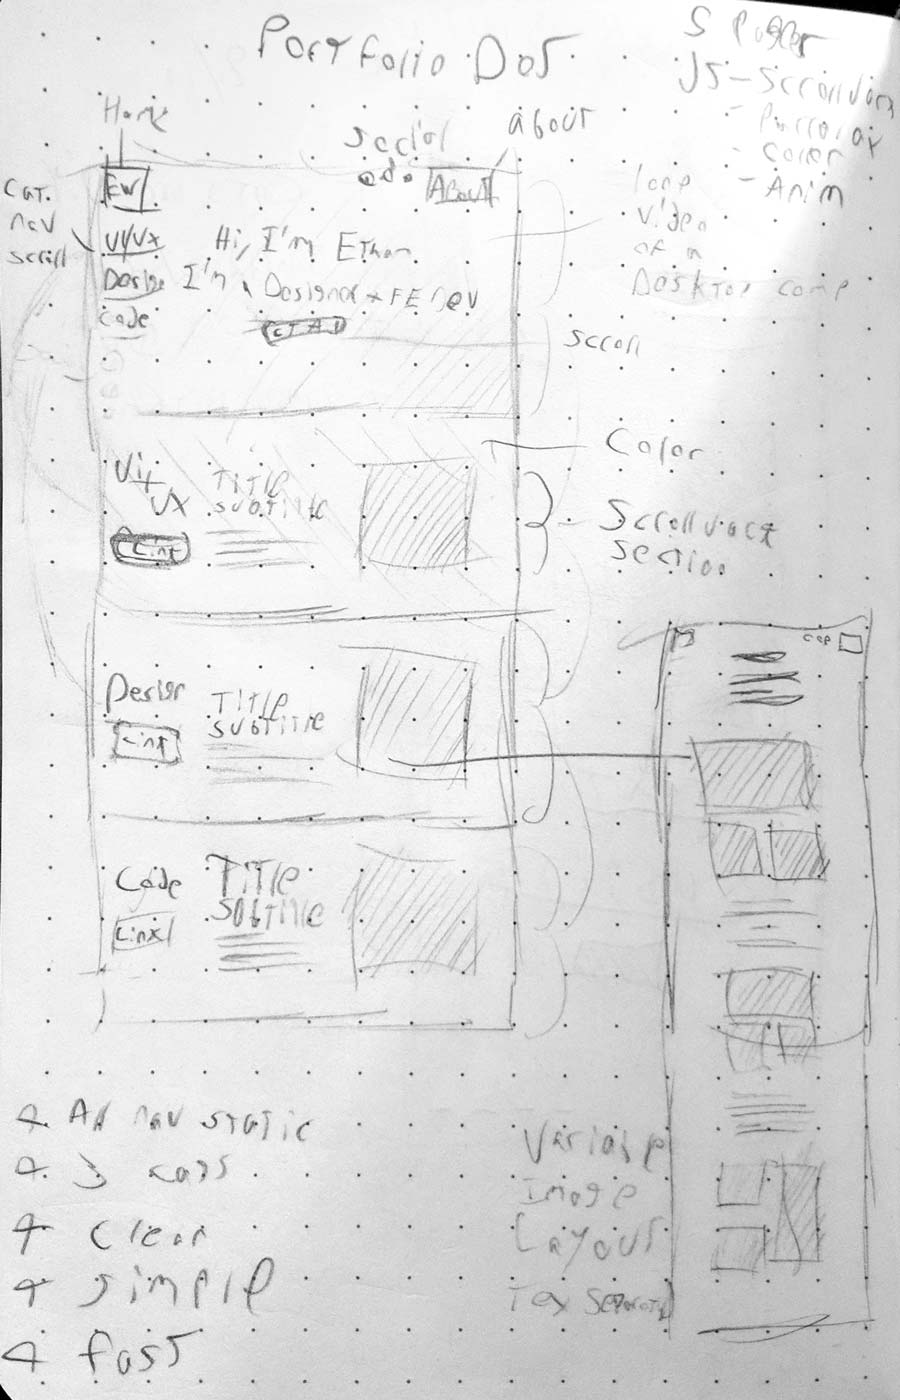 Portfolio Dot
S Pages
JS - Scrolljack
- Parralax
- Color
- Anim
Home
Social
About
EW
About
Cat.
nav
scroll
UI/UX
Design
Code
Hi, I'm Ethan
I'm a Designer + FE Dev
CTA
loop
video
of a
Desktop comp
scroll
Color
UI+
UX
Link
Title
subtitle
Scrolljack
section
Design
Link
Title
subtitle
Code
Link
Title
subtitle
nav static
3
clear
simple
fast
Variable
Image
Layout